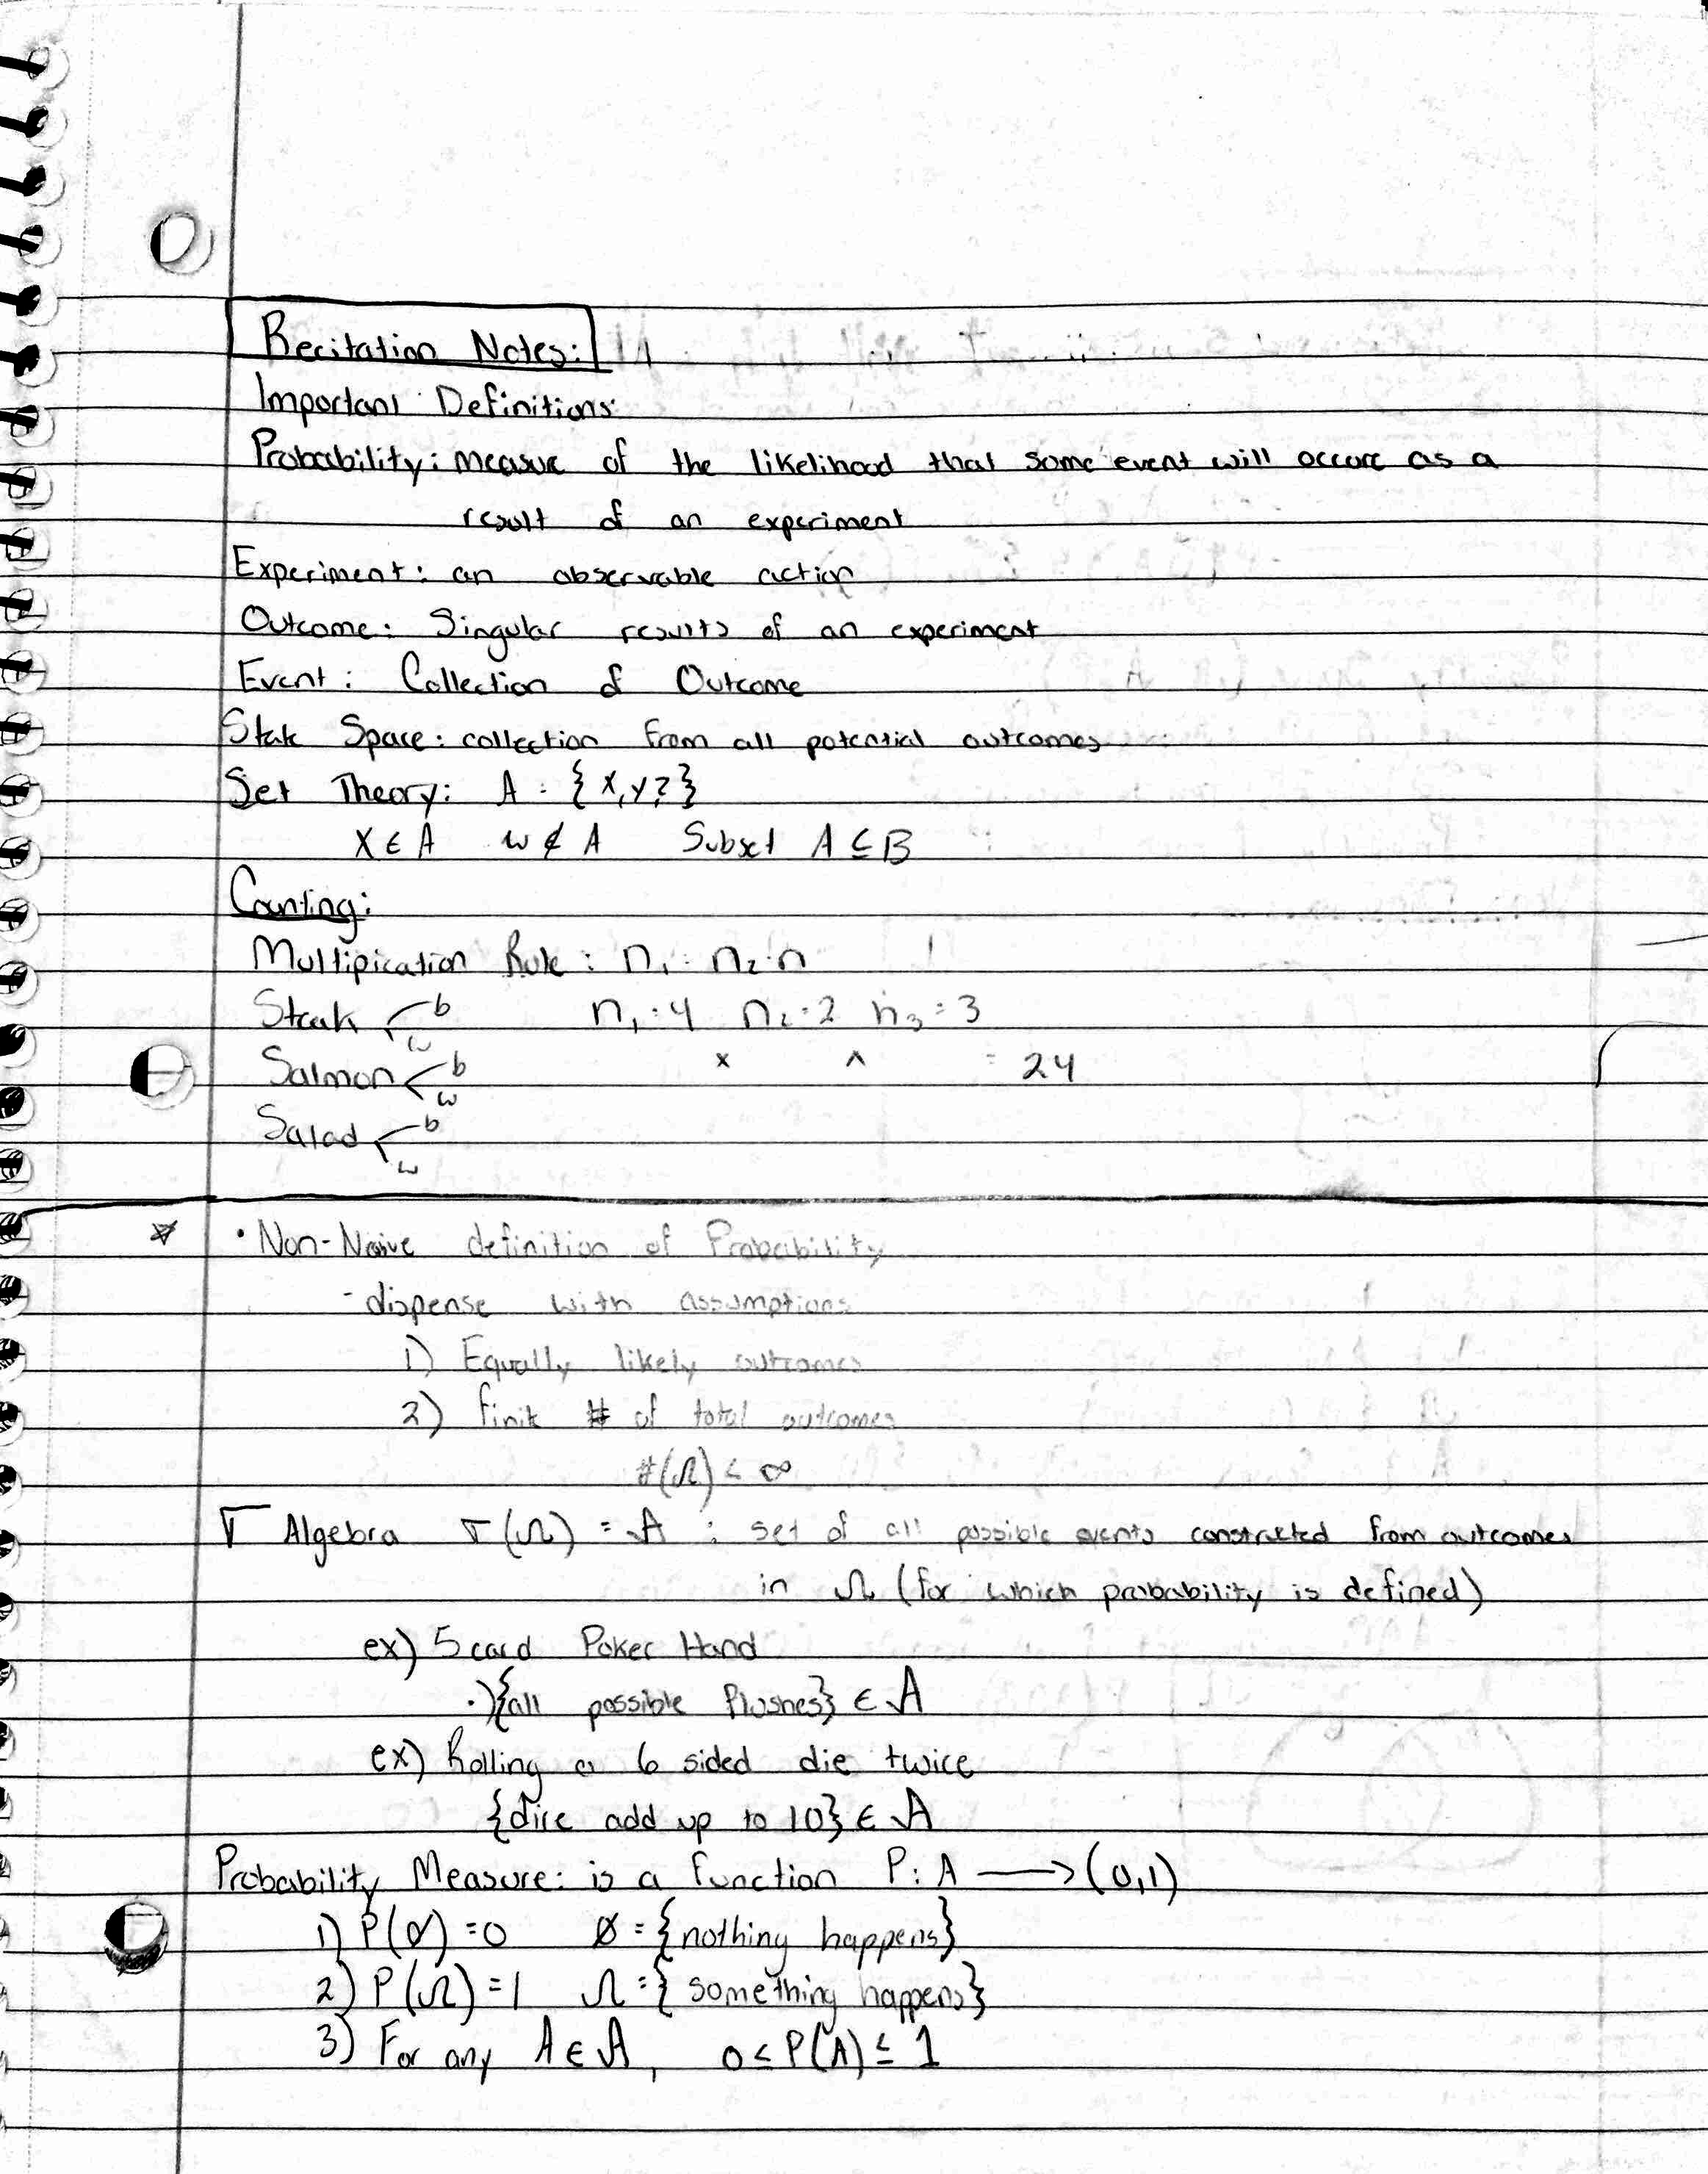 Recitation Notes:
Important Definitions:
Probability: measure of the likelihood that some event will occure as a
result of an experiment
Experiment: an observable action
Outcome: Singular results of an experiment
Event: Collection of Outcome
State Space: collection from all potential outcomes
Set Theory: A = {x,y,z}
x ∈ A w ∉ A Subset A ⊆ B
Counting:
Multipication Rule: n₁ · n₂ · n
Steak b w n₁ = 4 n₂ = 2 n₃ = 3
Salmon b w x x = 24
Salad b w
☆ • Non-Naive definition of Probability
- dispense with assumptions
1) Equally likely outcomes
2) finite # of total outcomes
#(Ω) < ∞
σ Algebra σ(Ω) = 𝒜 : set of all possible events constructed from outcomes
in Ω (for which probability is defined)
ex) 5 card Poker Hand
·) {all possible flushes} ∈ 𝒜
ex) Rolling a 6 sided die twice
{dice add up to 10} ∈ 𝒜
Probability Measure: is a function P: A ⟶ (0,1)
1) P(∅) = 0 ∅ = {nothing happens}
2) P(Ω) = 1 Ω = {something happens}
3) For any A ∈ 𝒜, 0 ≤ P(A) ≤ 1